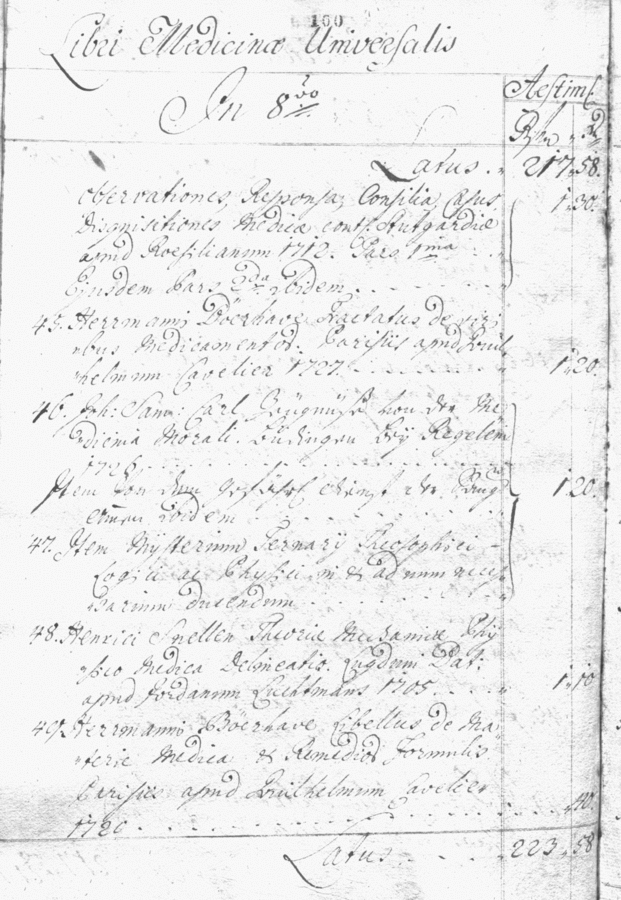 100
Libri Medicinæ Universalis
In 8vo
Aestim:
Latus . 217 58.
Observationes, Responsa, Consilia, Casus 1 30.
Disquisitiones Medicæ Stutgardiæ
apud Roeslianum 1712. Pars 1ma
Ejusdem Pars 2da ibidem
45. Herrmanni Böerhave Tractatus de viri
bus Medicamentor. Parisiis apud Guil
helmum Cavelier 1727. 1 20.
46. Joh: Sam: Carl Zeügnüße von der Me
dicina Morali. Büdingen bey Regelein
1726
Item von dem der
ibidem 1 20.
47. Item Mysterium Ternarÿ Theosophici
Logici ac Physici in & ad unum neces
sarium ducendum
48. Henrici Snellen Theoriæ Mechanicæ Phÿ
sico Medica Delineatio. Lugduni Bat:
apud Jordanum Luchtmans 1705. 1 10
49. Herrmanni Böerhave Libellus de Ma
terie Medica & Remedior Formulis
Parisiis apud Guilhelmum Cavelier
1720 40.
Latus 223 58